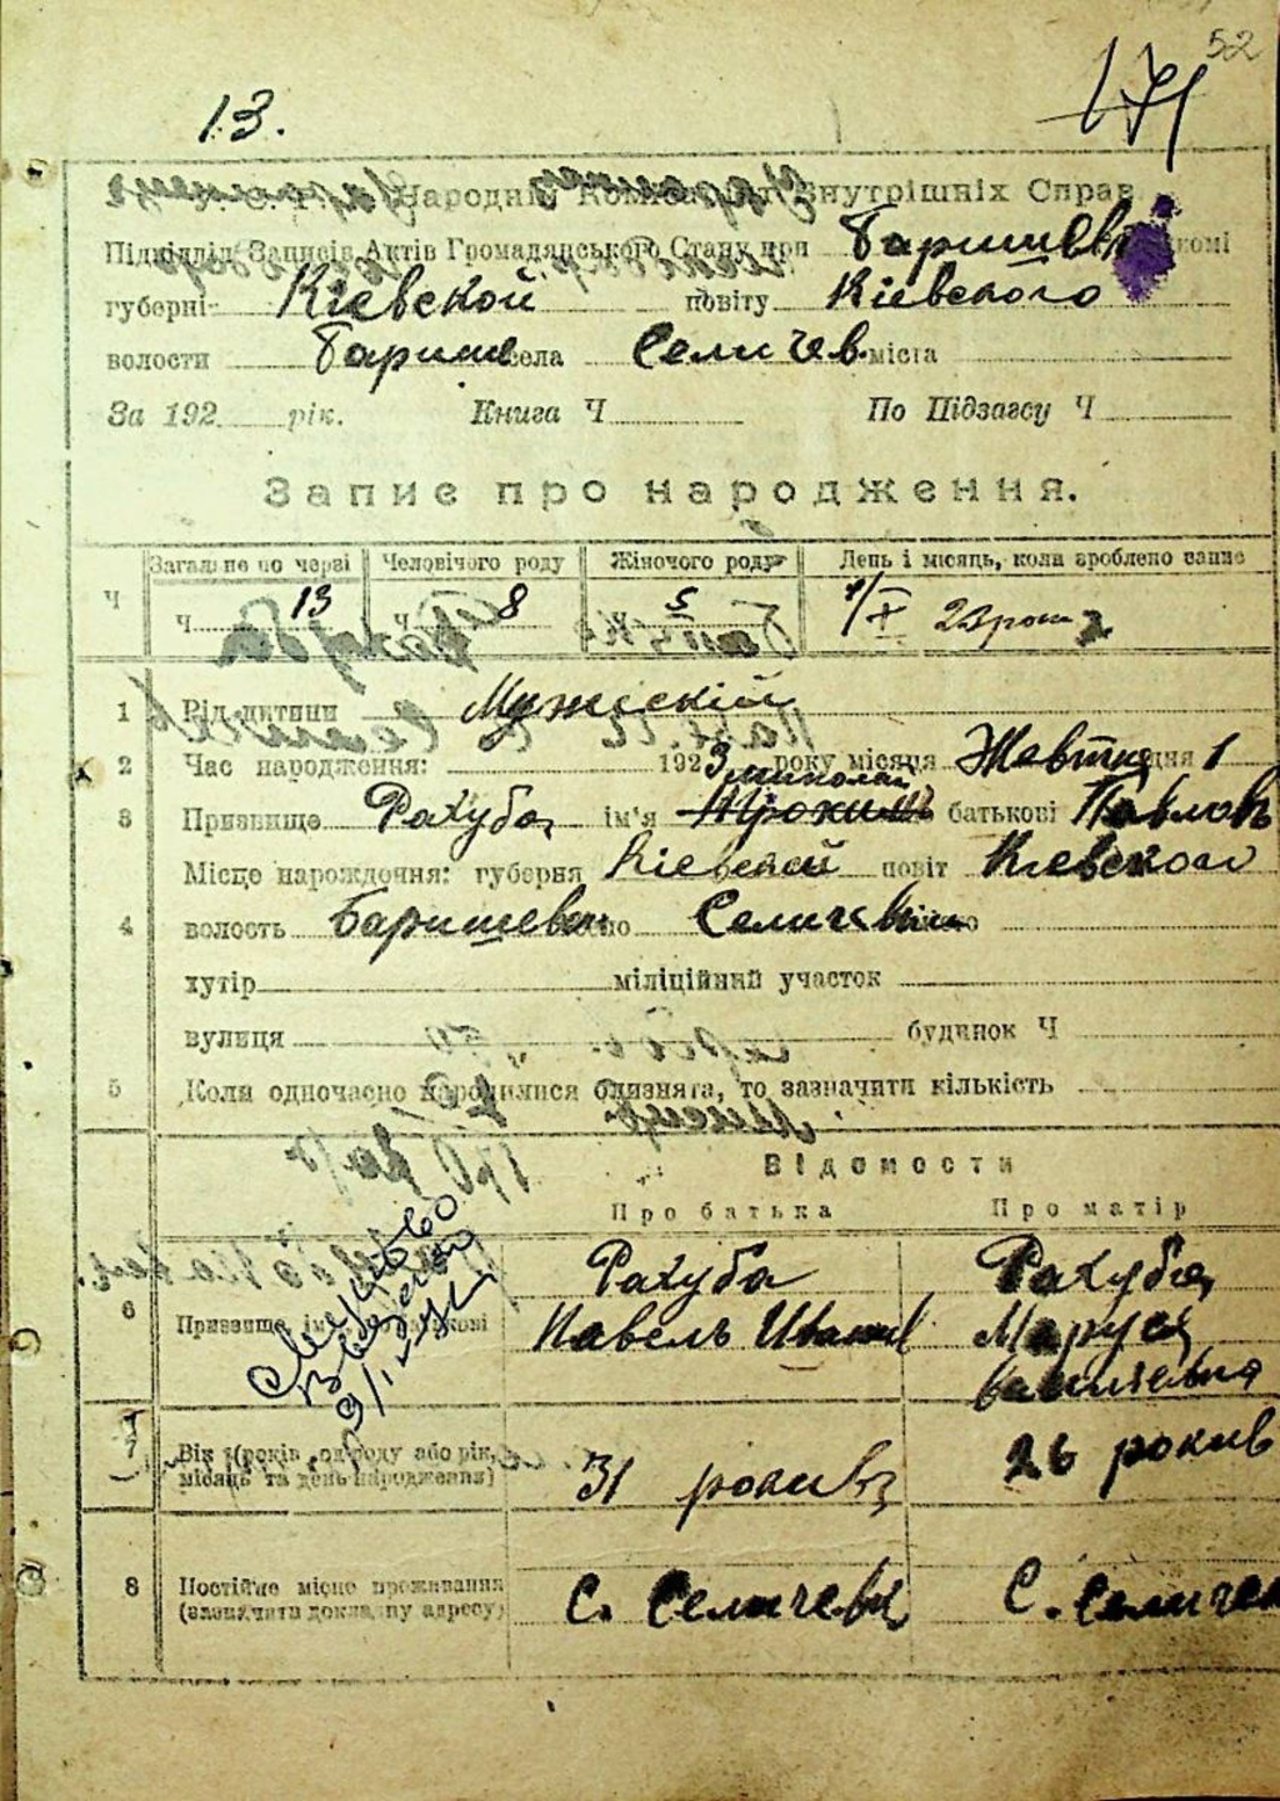 52
171
13.
Народній Комісаріят Внутрішніх Справ
Підвідділ Записів Актів Громадянського Стану при Баришевк
губерні Кіевской повіту Кіевского
волости Баришев села Селичев. міста
За 192 рік. Книга Ч По Підзагсу Ч
Запис про народження.
Загальне по черзі Человічого роду Жіночого роду День і місяць, коли зроблено запис
Ч ч. 13 ч. 8 ч. 5 1/X 23 року
1 Рід дитини Мужескій
2 Час народження: 1923 року місяця Жовтня дня 1
Миколай
3 Призвище Рахуба ім'я Трохим батькові Павловъ
Місце народження: губерня Кіевской повіт Киевского
4 волость Баришевск село Селичевка місто
хутір міліційний участок
вулиця будинок Ч
5 Коли одночасно народилися близнята, то зазначити кількість
Відомости
Про батька Про матір
Рахуба Рахуба
6 Призвище, ім'я по батькові Павелъ Иванов Маруся
Васильевна
Свидетельство
9/IV-51
7 Вік (років, од роду або рік, 31 рокивъ 26 рокив
місяць та день народження)
8 Постійне місце проживання С. Селичевк С. Селичев
(зазначити докладну адресу)